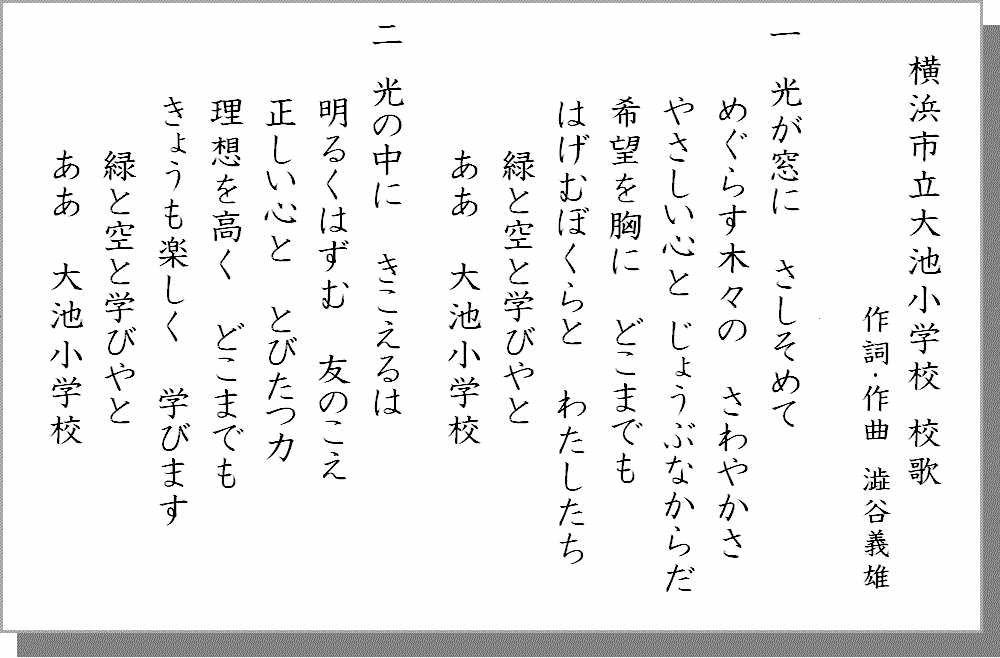 横浜市立大池小学校　校歌
作詞・作曲　澁谷義雄
一　光が窓に　さしそめて
めぐらす木々の　さわやかさ
やさしい心と　じょうぶなからだ
希望を胸に　どこまでも
はげむぼくらと　わたしたち
緑と空と学びやと
ああ　大池小学校
二　光の中に　きこえるは
明るくはずむ　友のこえ
正しい心と　とびたつ力
理想を高く　どこまでも
きょうも楽しく　学びます
緑と空と学びやと
ああ　大池小学校